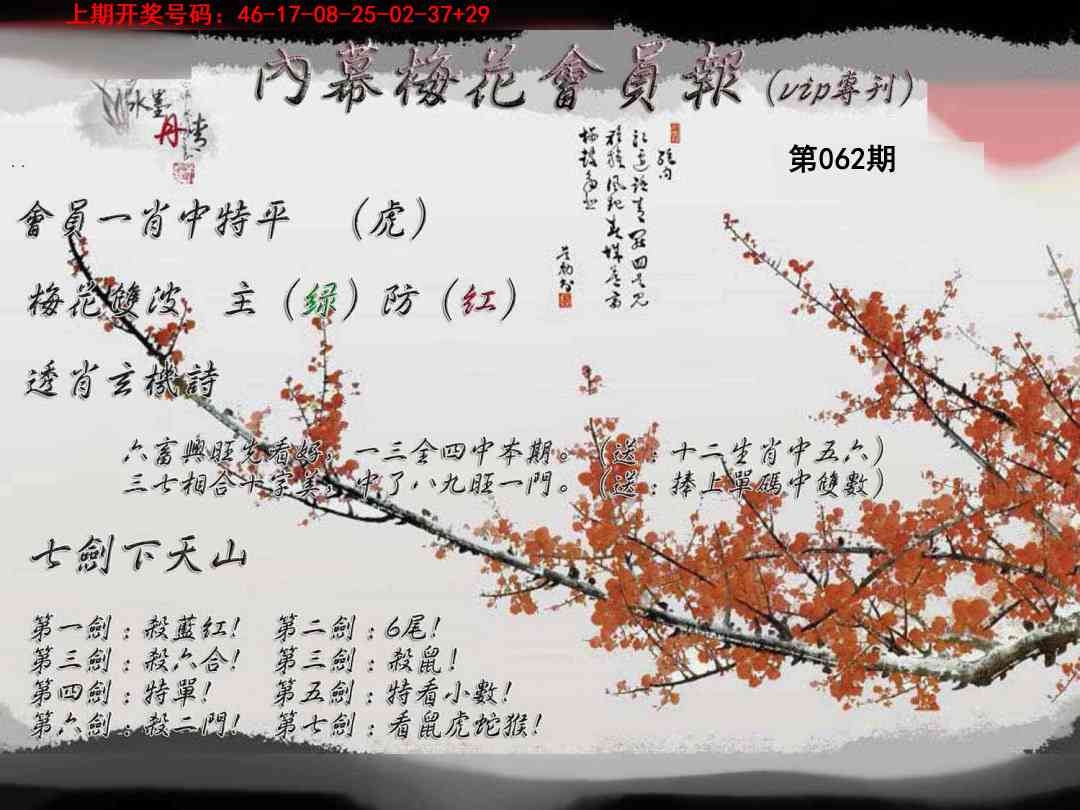 上期开奖号码：46-17-08-25-02-37+29
內幕梅花會員報(vip專刊)
水墨
丹青
第062期
會員一肖中特平 （虎）
梅花雙波 主（绿）防（红）
透肖玄機詩
六畜興旺先看好，一三全四中本期。（送：十二生肖中五六）
三七相合十字美，中了八九旺一門。（送：捧上單碼中雙數）
七劍下天山
第一劍：殺藍紅！ 第二劍：6尾！
第三劍：殺六合！ 第三劍：殺鼠！
第四劍：特單！ 第五劍：特看小數！
第六劍：殺二門！ 第七劍：看鼠虎蛇猴！